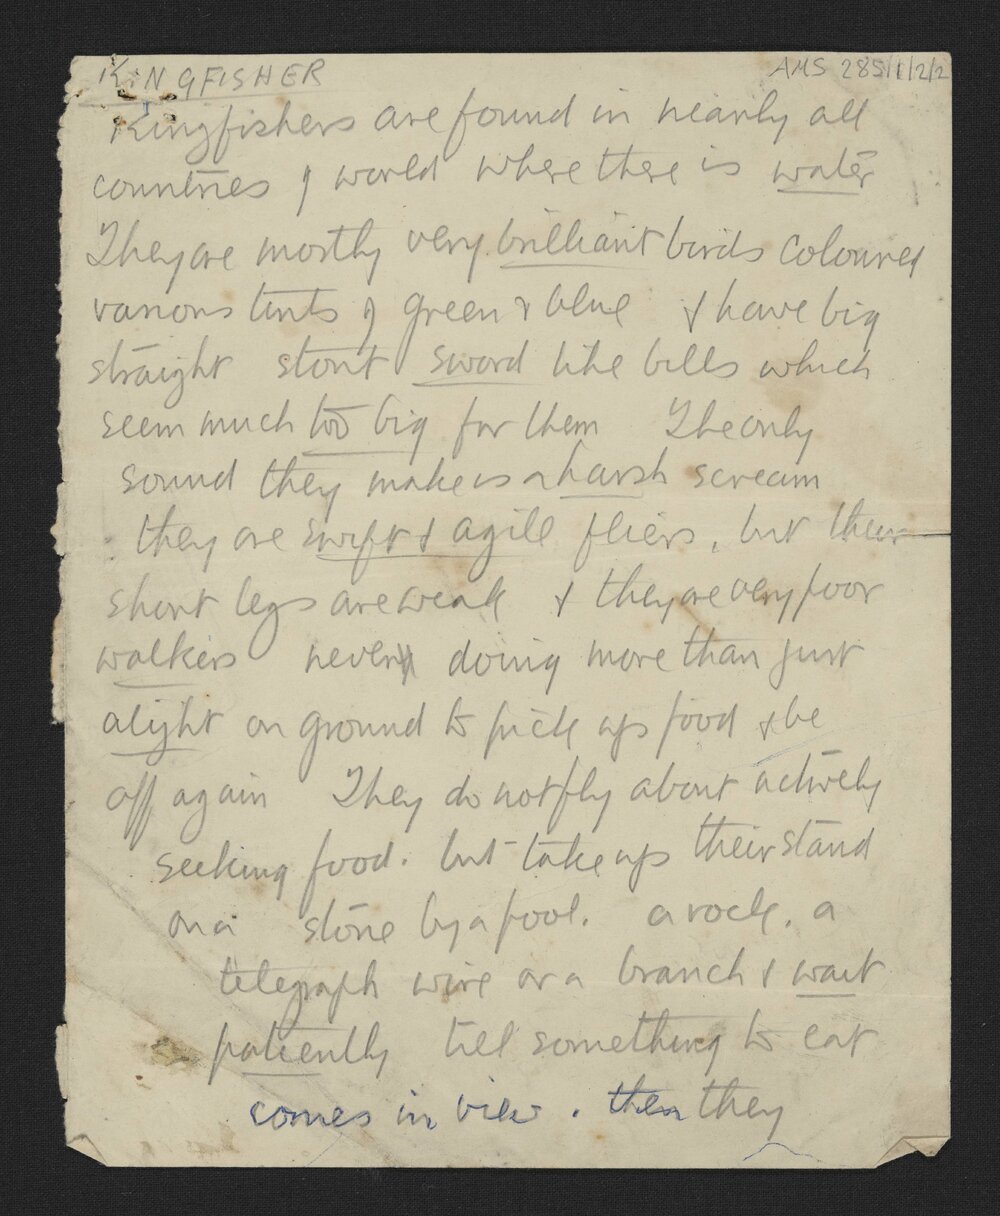 KINGFISHER
AMS 285/1/2/2
Kingfishers are found in nearly all
countries of world where there is water
They are mostly very brilliant birds coloured
various tints of green & blue & have big
straight stout sword like bills which
seem much too big for them The only
sound they make is a harsh scream
they are swift & agile fliers, but their
short legs are weak & they are very poor
walkers never doing more than just
alight on ground to pick up food & be
off again They do not fly about actively
seeking food. but take up their stand
on a stone by a pool. a rock. a
telegraph wire or a branch & wait
patiently till something to eat
comes in view. then they